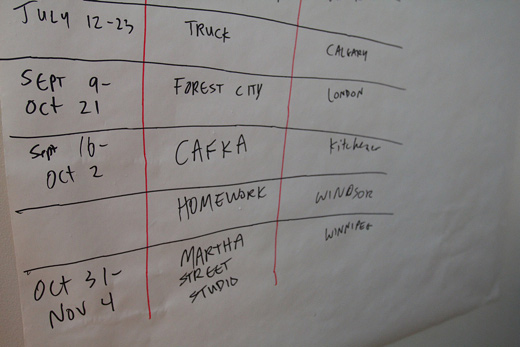 JULY 12-23 TRUCK CALGARY
SEPT 9-
OCT 21
FOREST CITY LONDON
Sept 16-
OCT 2
CAFKA Kitchener
HOMEWORK WINDSOR
OCT 31-
NOV 4
MARTHA
STREET
STUDIO
WINNIPEG